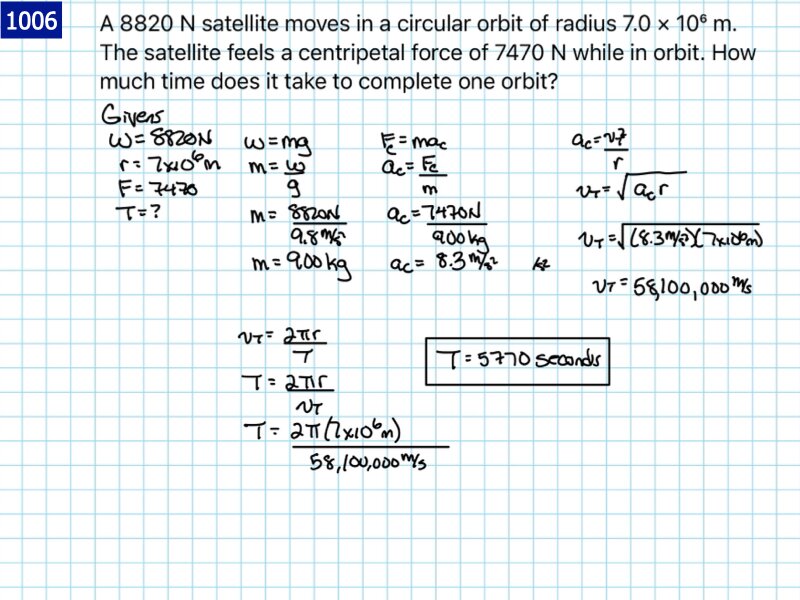 1006
A 8820 N satellite moves in a circular orbit of radius 7.0 × 10⁶ m.
The satellite feels a centripetal force of 7470 N while in orbit. How
much time does it take to complete one orbit?
Givens
W = 8820N
r = 7x10⁶m
F = 7470
T = ?
W = mg
m = w/g
m = 8820N / 9.8 m/s²
m = 900 kg
Fc = mac
ac = Fc/m
ac = 7470N / 900 kg
ac = 8.3 m/s²
ac = v²/r
vT = √acr
vT = √(8.3 m/s²)(7x10⁶m)
vT = 58,100,000 m/s
vT = 2πr/T
T = 2πr/vT
T = 2π(7x10⁶m) / 58,100,000 m/s
T = 5770 seconds